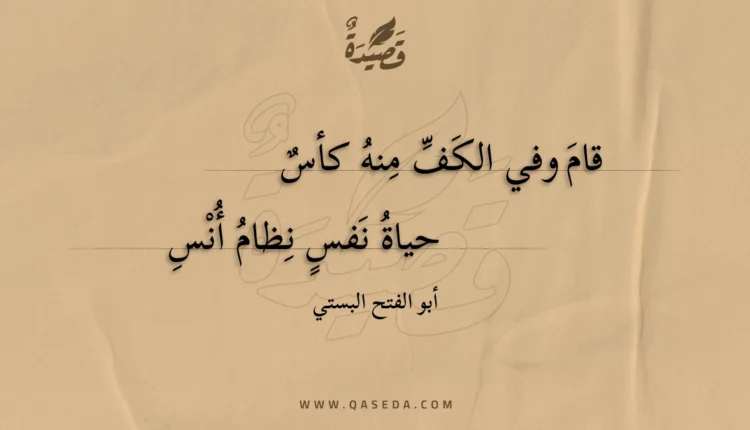 قَصِيدَةٌ
قامَ وفي الكَفِّ مِنهُ كأسٌ
حياةُ نَفسٍ نِظامُ أُنْسِ
أبو الفتح البستي
WWW.QASEDA.COM